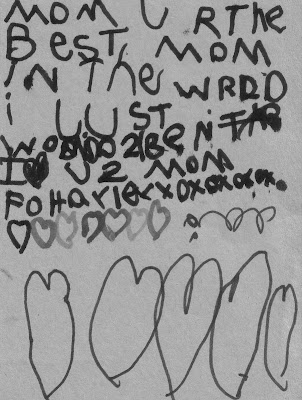 MOM U R The
BesT MOM
iN The WRDD
i JUST
WONDD2BeN i
I ♥ U 2 MOM
FO Harlexxoxoxoxox.